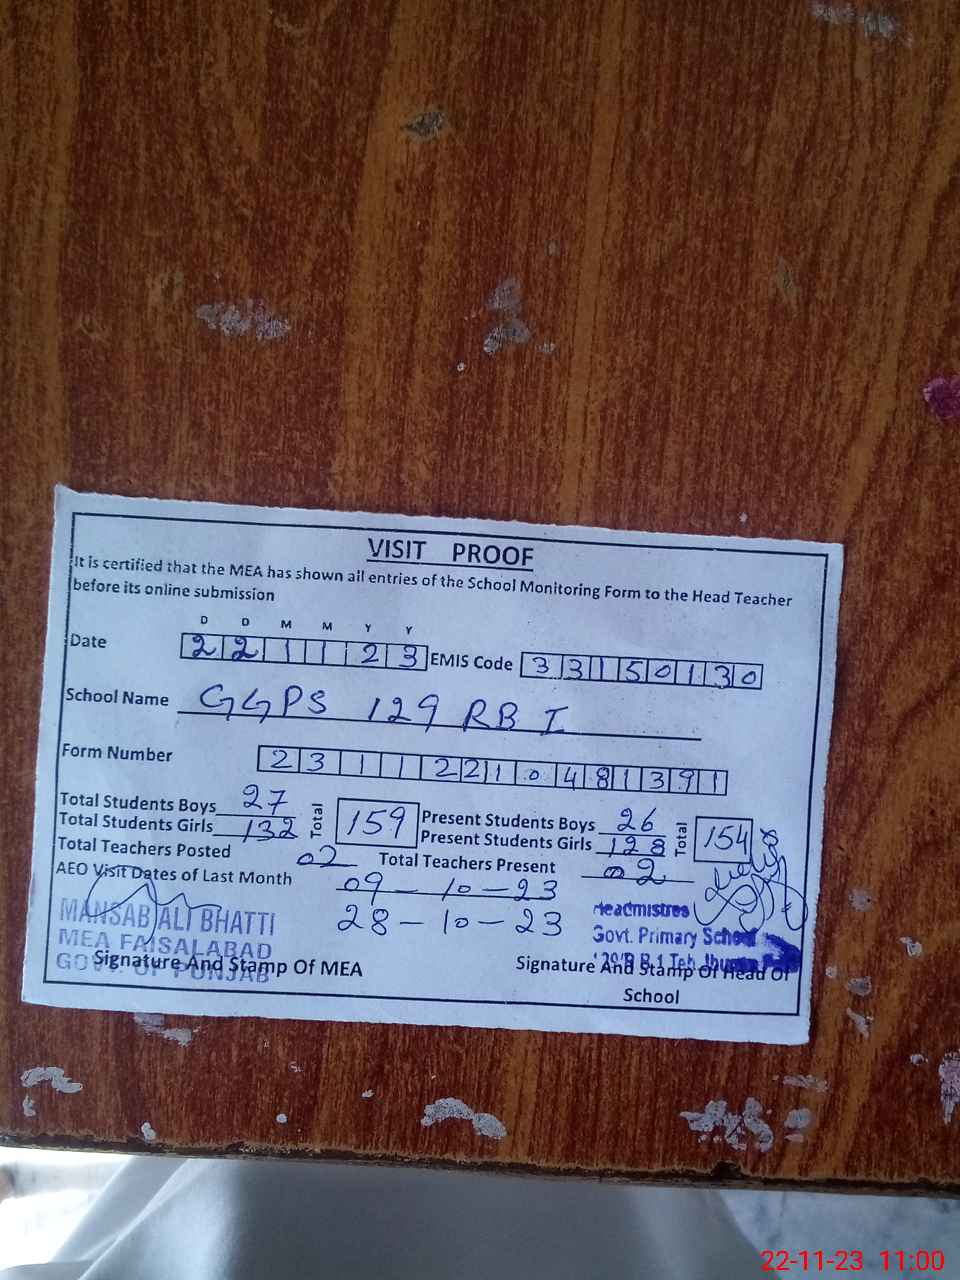 VISIT PROOF
It is certified that the MEA has shown all entries of the School Monitoring Form to the Head Teacher
before its online submission
D D M M Y Y
Date 2 2 1 1 2 3 EMIS Code 3 3 1 5 0 1 3 0
School Name GGPS 129 RB I
Form Number 2 3 1 1 2 2 1 0 4 8 1 3 9 1
Total Students Boys 27 Total 159 Present Students Boys 26 Total 154
Total Students Girls 132 Present Students Girls 128
Total Teachers Posted 02 Total Teachers Present 02
AEO Visit Dates of Last Month 09-10-23
28-10-23
MANSAB ALI BHATTI
MEA FAISALABAD
GOVT. OF PUNJAB
Signature And Stamp Of MEA
Headmistres
Govt. Primary School
Signature And Stamp Of Head Of
School
22-11-23 11:00